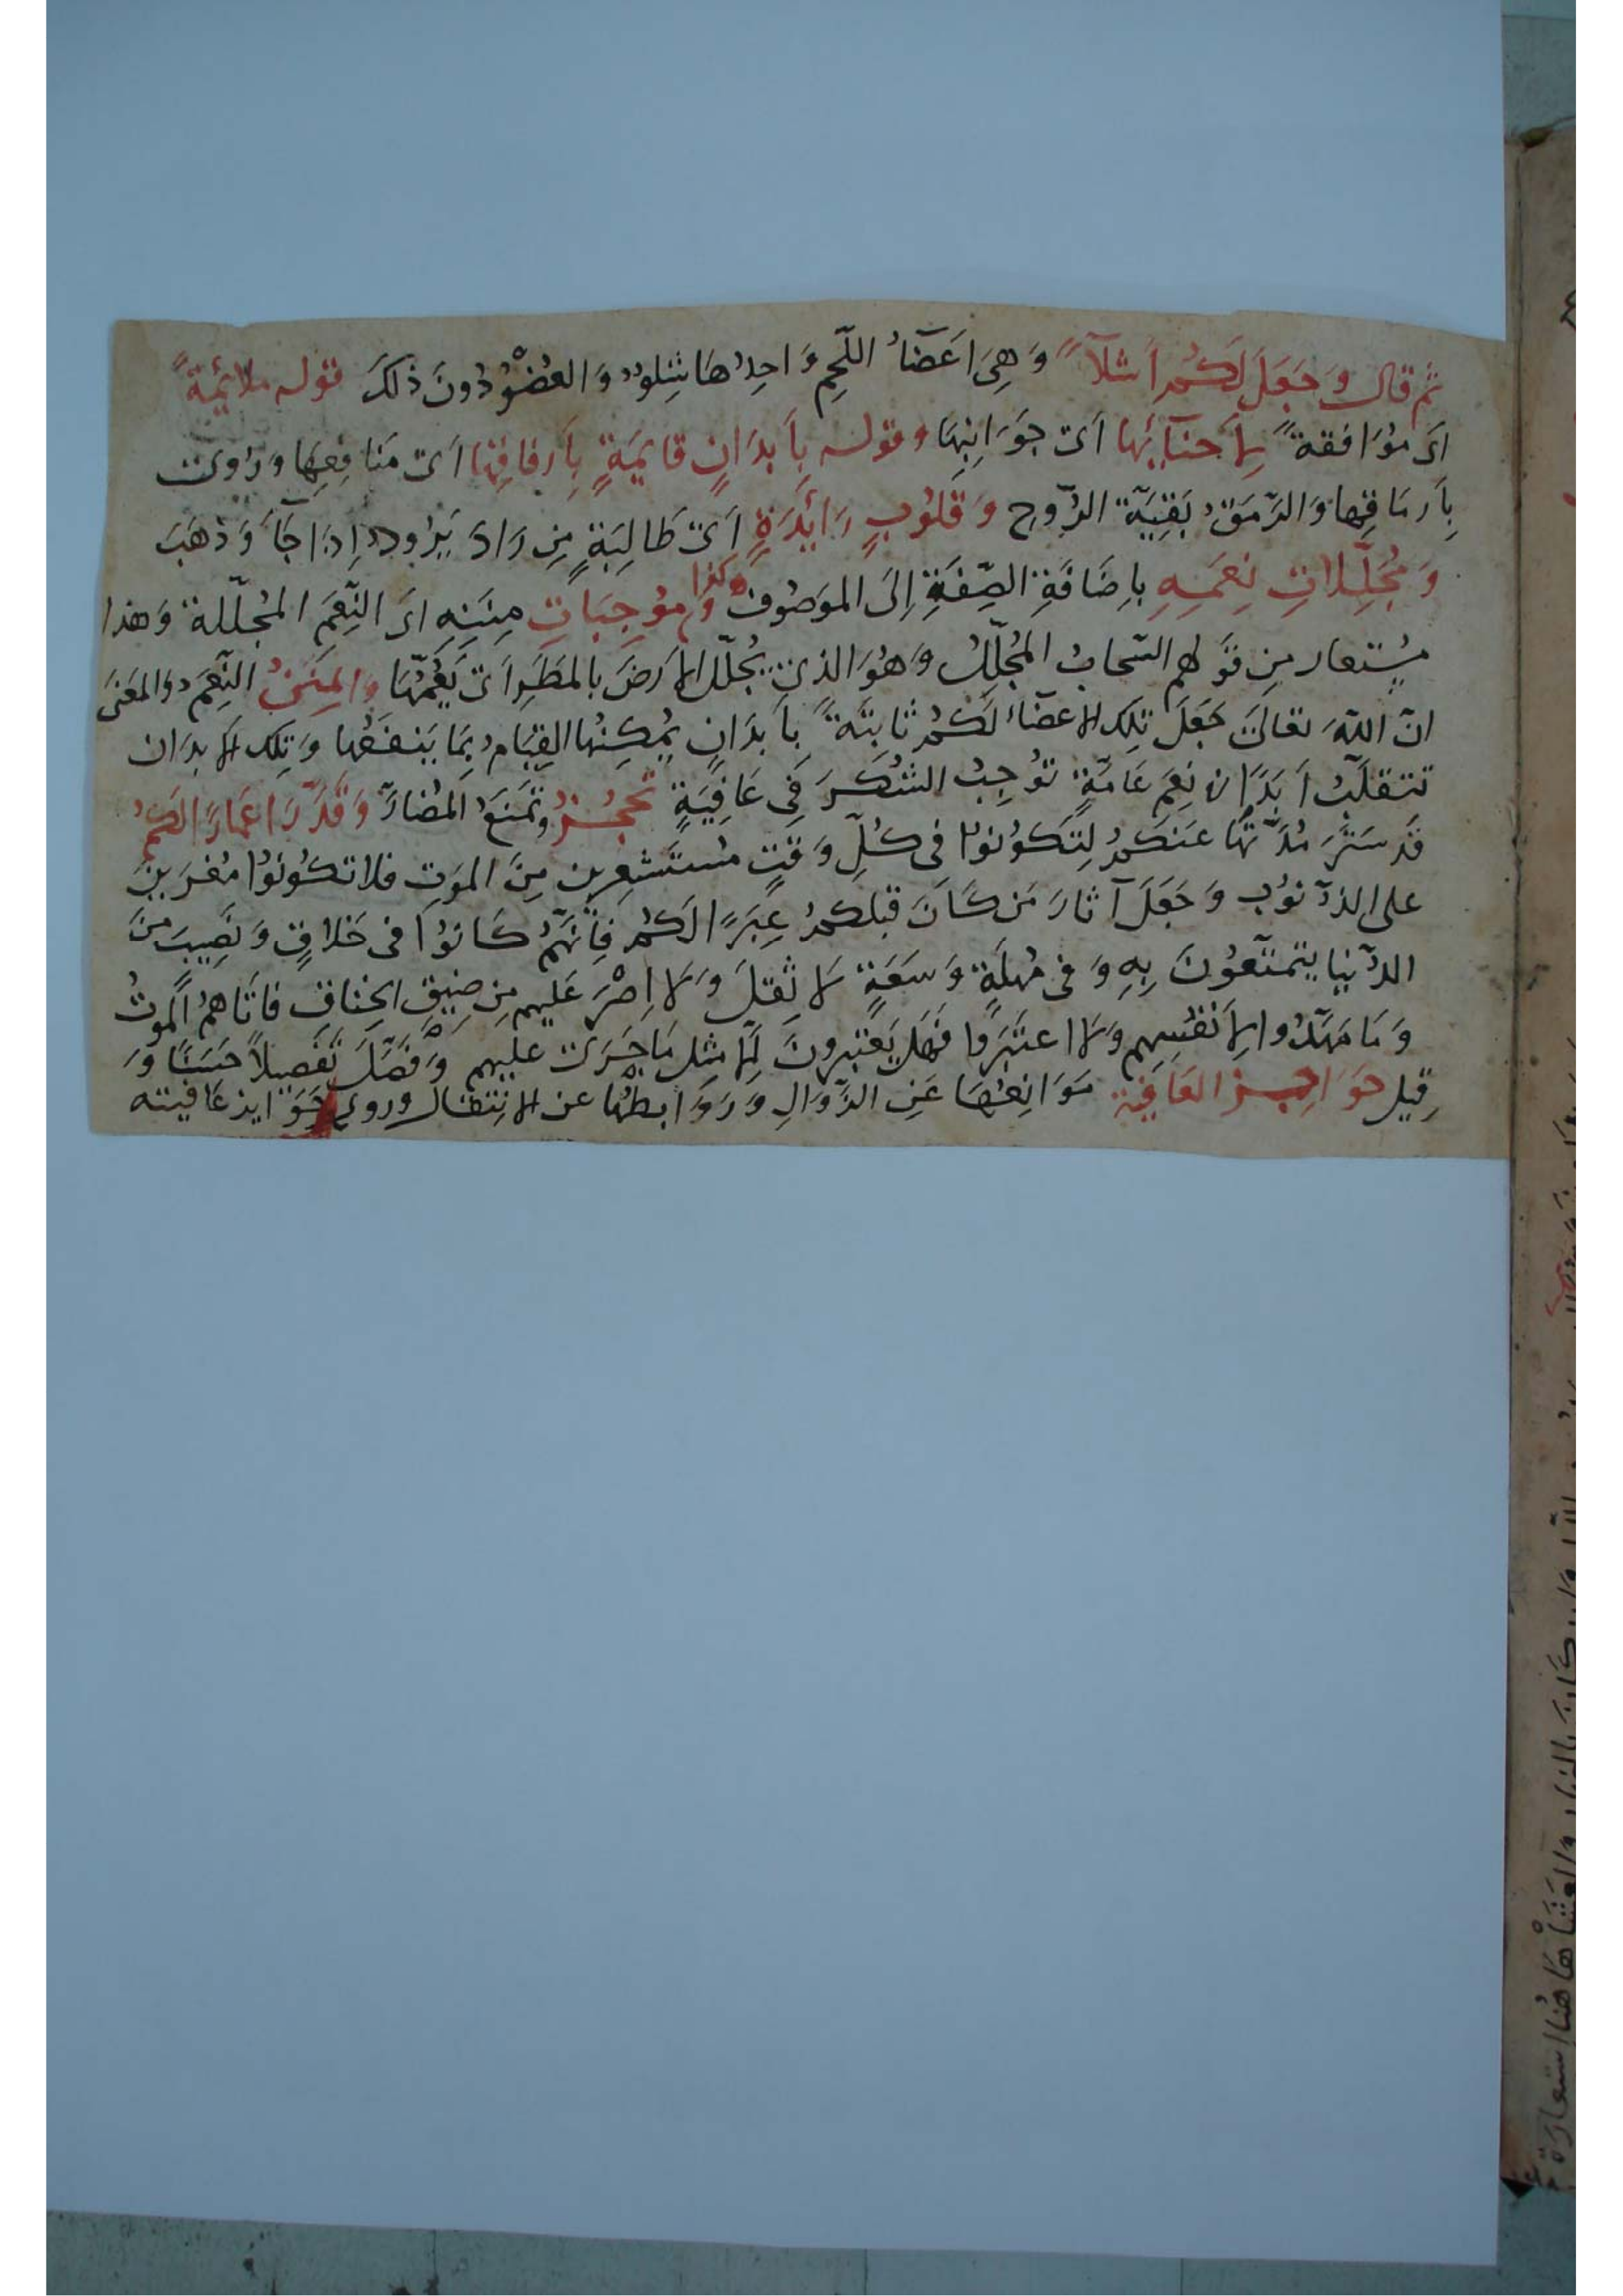 ثم قال وَجَعَلَ لَكُم اَشلآءً وَهِىَ اَعضَآءُ اللّحمِ وَاحِدُهَا شِلوٌ وَ العُضْوُ دُونَ ذلكَ قوله ملائمةً
اى مُوَافقةً لِاَحنآئِها اَى جَوَانِبِهَا وقوله بِاَبدَانٍ قايمَةٍ بِاَرفاقِها اَى مَنَافِعِهَا وَرُوِىَ
بِاَرمَاقِها وَالرّمَقُ بَقِيَّة الرُّوحِ وَ قلُوبٍ رَائدَةٍ اَى طَالِبَةٍ مِن رَادَ يَرُودُ اِذَا جَآءَ وَذهَبَ
وَ مُجَلِّلاتِ نِعَمِهِ بِاِضَافَةِ الصِّفَةِ اِلَى المَوصُوف وكذا وَ مُوجِبَاتِ مِنَنِهِ اى النِّعَم المُجلّلة وَهذا
مُستعار مِن قَولهم السّحابُ المُجلّلُ وَهُوَ الذى يُجلّل الاَرضَ بالمَطَرِ اَى يَعُمُّهَا وَالمِنَنُ النِّعَمُ وَالمَعنَى
انّ اللّهَ تعالىَ جَعَلَ تلك الاعضآءَ لَكُم ثابتَةً بِاَبدَانٍ يُمكِنُهَا القِيَامُ بِمَا يَنفَعُها وَ تلك الاَبدَان
تتقلّبُ اَبَدًا فى نِعَمٍ عَامّةٍ تُوجِبُ الشُكرَ فى عَافِيَةٍ تَحجُزُ وتَمنَعُ المُضارَّ وَقَدَّرَ اَعمَارًا لَكُم
قَد سَتَرَ مُدّتَهَا عَنكم لِتَكُونوُا فى كُلِّ وَقتٍ مُستَشعِرين مِنَ المَوتِ فلا تكُونوُا مُغرَينَ
على الذّنوُب وَجَعَلَ آثارَ مَن كَانَ قبلكم عِبَرًا لَكُم فَاِنّهُم كَانوُا فى خَلاقٍ وَ نَصِيبَ مِنَ
الدّنيا يتمتّعُونَ بِهِ وَ فى مُهلَةٍ وَ سَعَةٍ لا ثِقلَ وَ لا اِصْرَ عَليهم مِن ضِيقِ الخِناقِ فاتَاهُمُ المَوتُ
وَ مَا مَهّدُوا لِاَنفُسِهم وَلا اعتَبَرُوا فَهَل يَعتبرونَ مثل مَا جَرَى عليهم وَفَصَّلَ تفَصيلاً حَسَنًا وَ
قِيل حَوَاجِز العَافيَة مَوَانِعُهَا عَنِ الزَّوَالِ وَ رَوَابطُها عن الانتقال وروى جَوَايز عَافيته